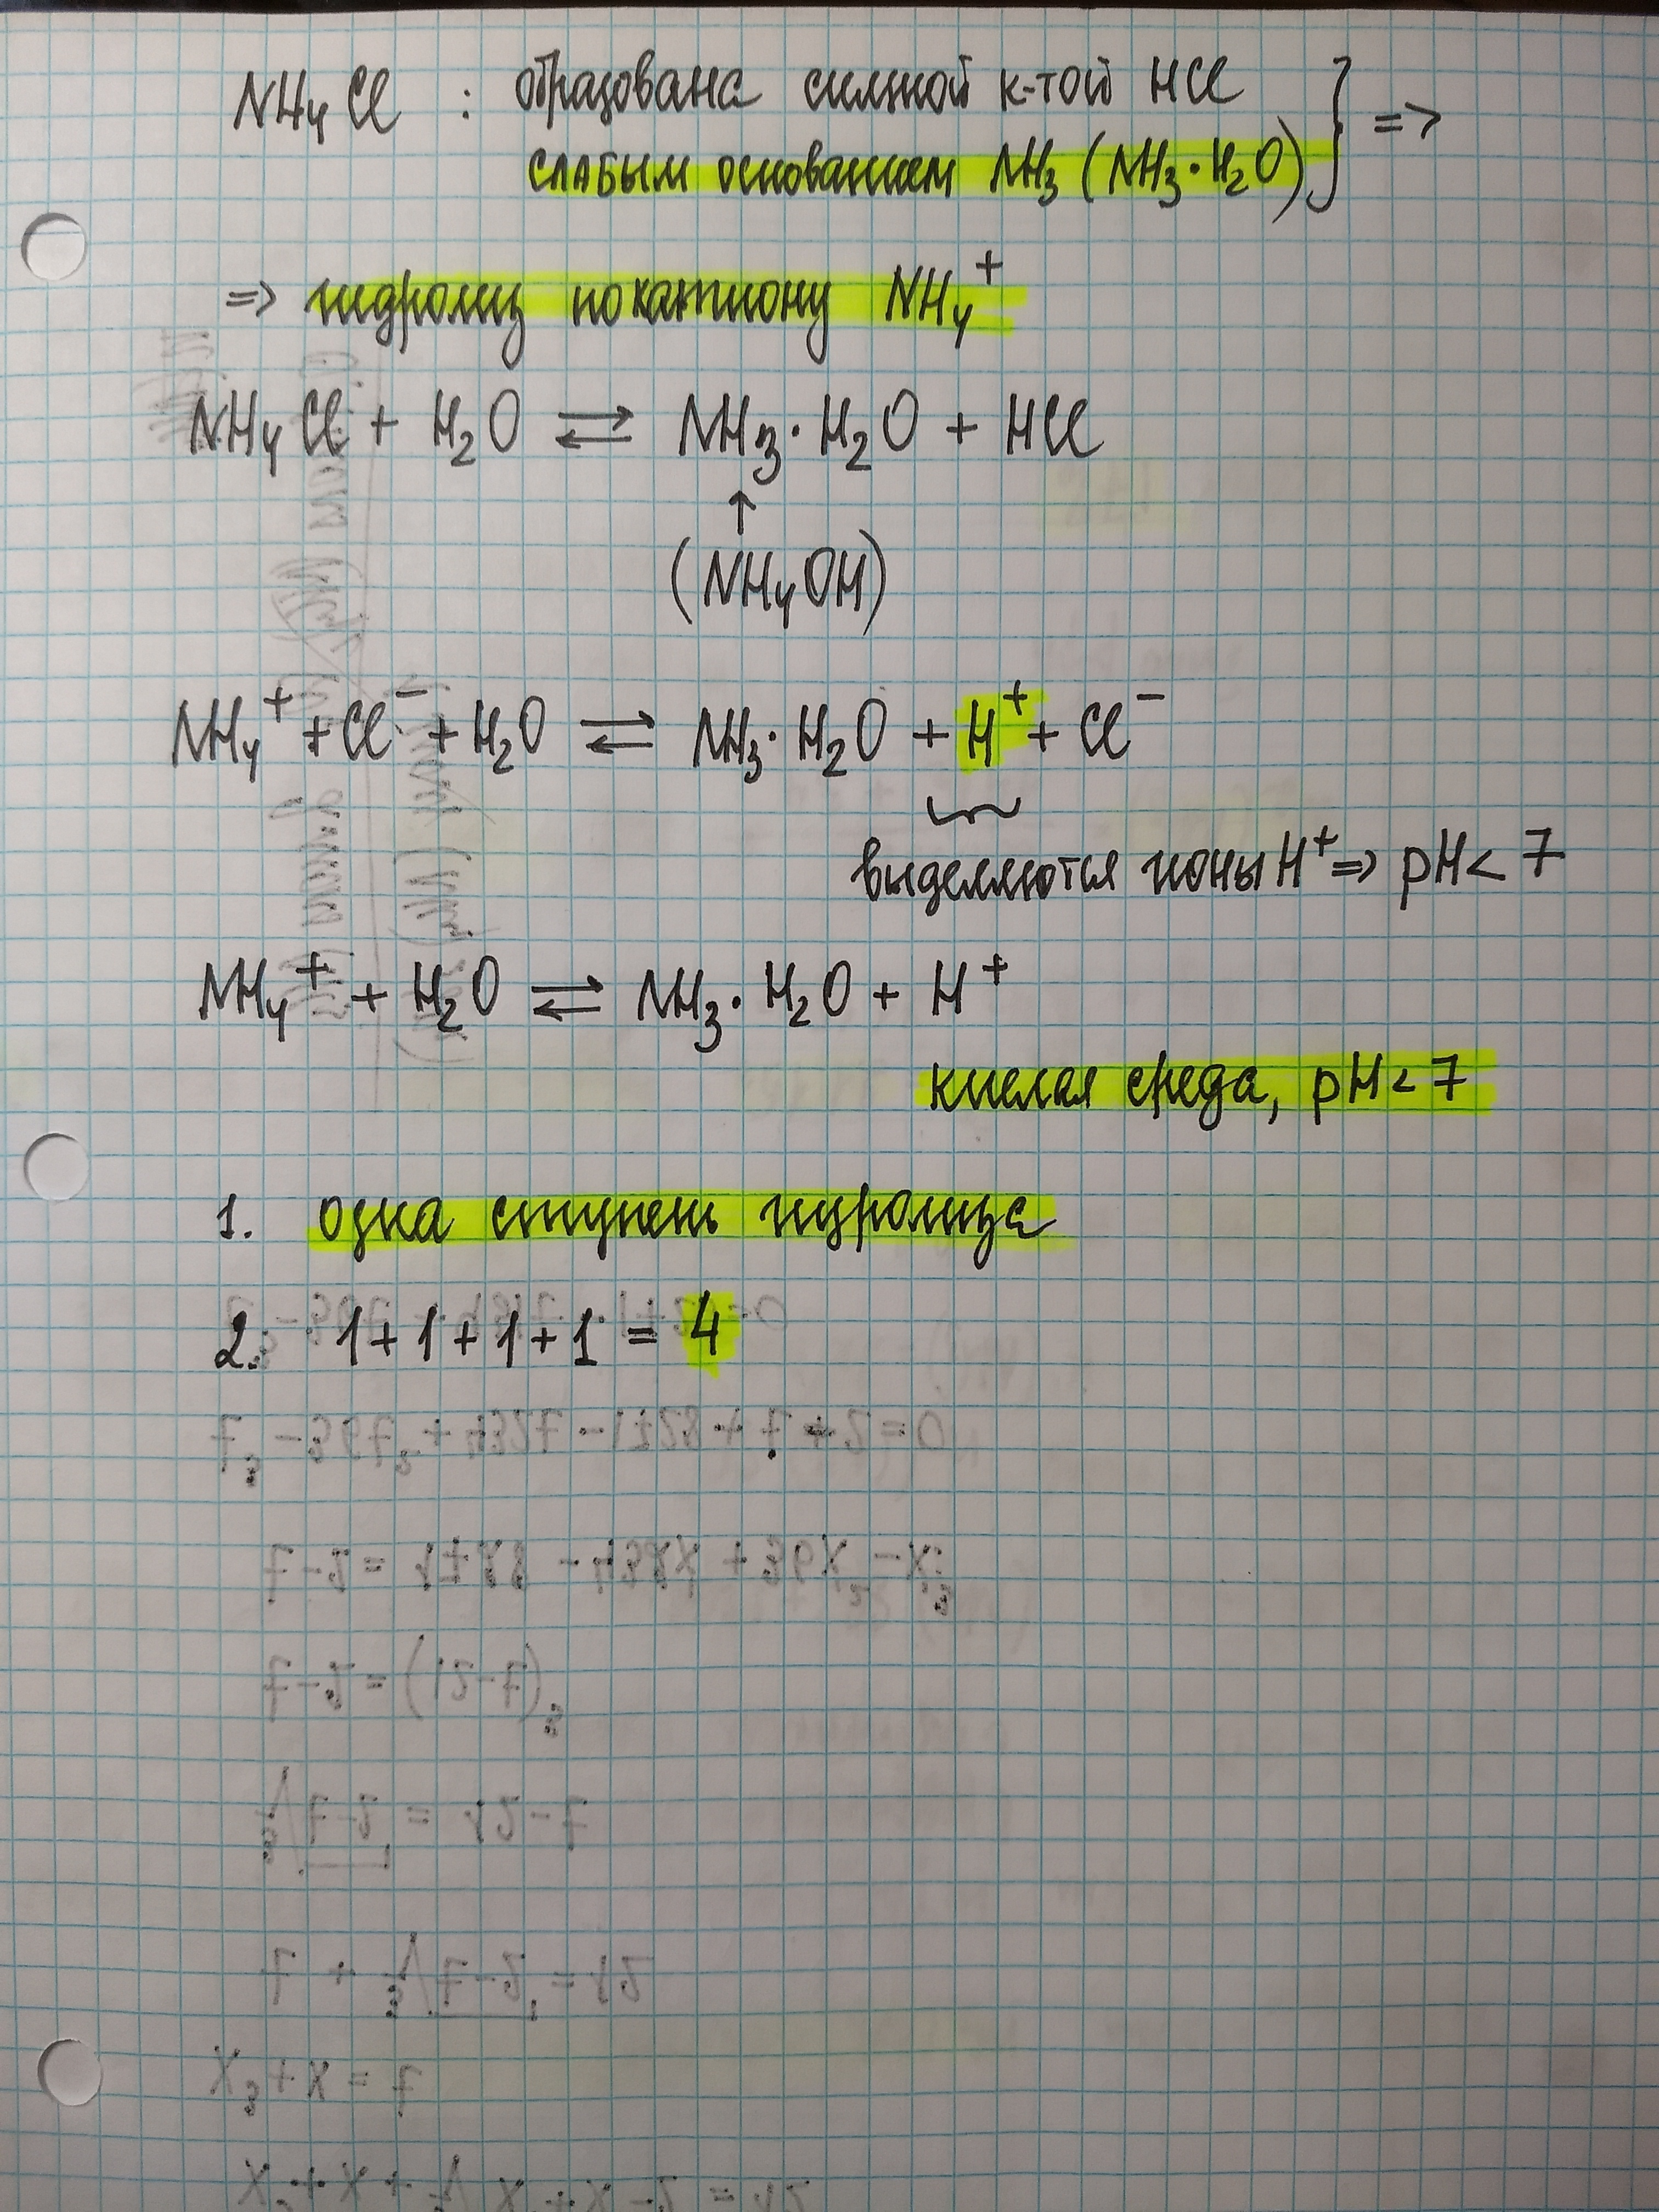 NH₄Cl : образована сильной к-той HCl } =>
слабым основанием NH₃ (NH₃·H₂O)
=> гидролиз по катиону NH₄⁺
NH₄Cl + H₂O ⇄ NH₃·H₂O + HCl
↑
(NH₄OH)
NH₄⁺ + Cl⁻ + H₂O ⇄ NH₃·H₂O + H⁺ + Cl⁻
выделяются ионы H⁺ => pH < 7
NH₄⁺ + H₂O ⇄ NH₃·H₂O + H⁺
кислая среда, pH < 7
1. одна ступень гидролиза
2. 1 + 1 + 1 + 1 = 4